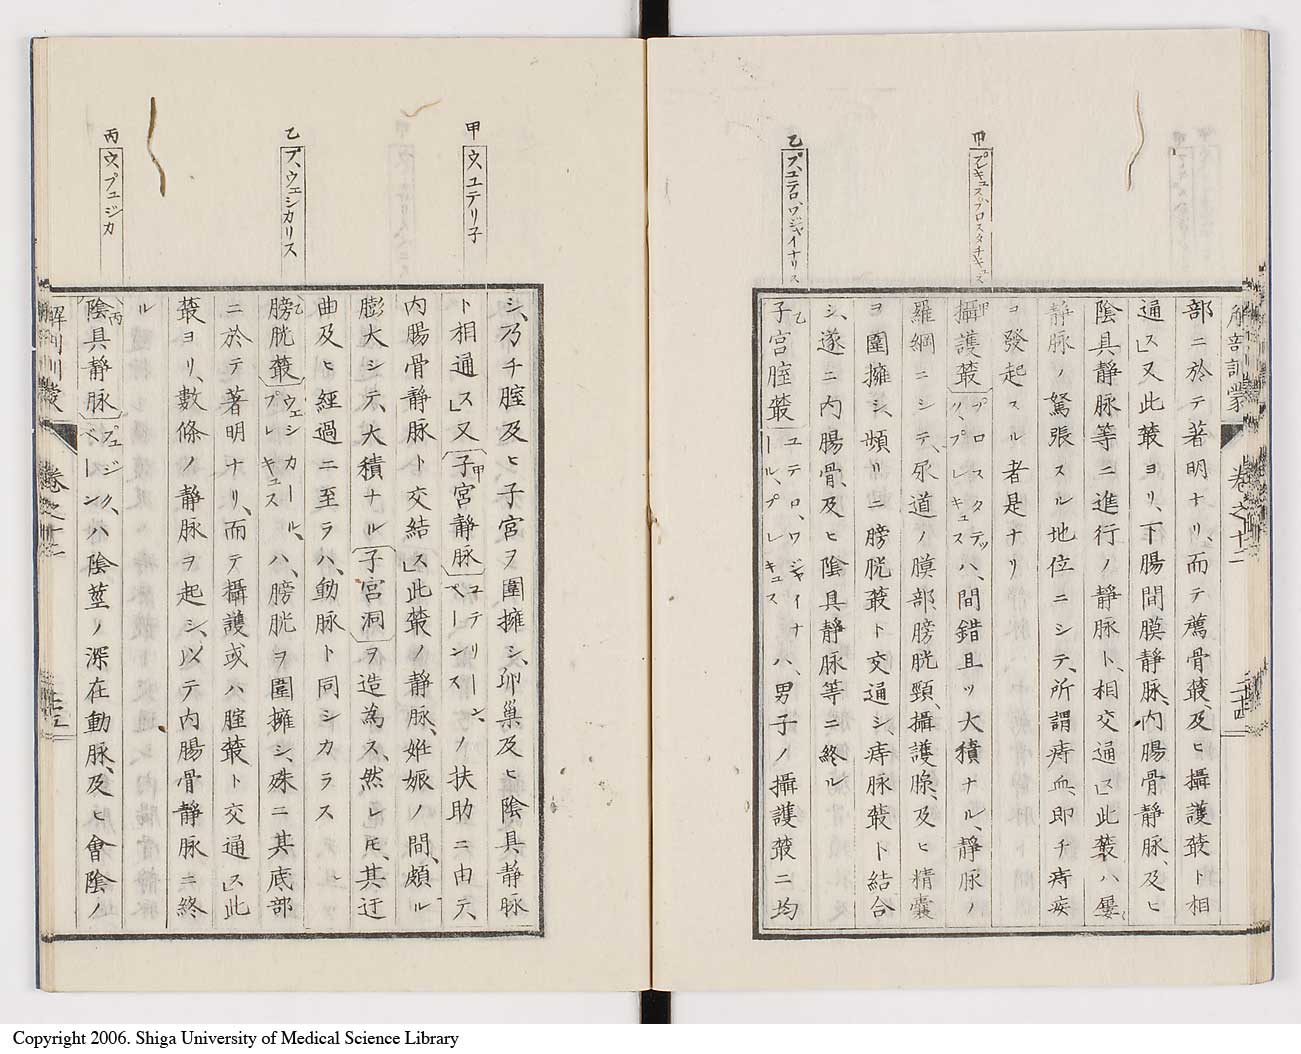 解剖訓蒙 卷之十二 二十四
甲 プレキュス、プロスタチキュス
乙 プ、ユテロ、ワジャイナリス
部ニ於テ著明ナリ、而テ薦骨叢、及ヒ攝護叢ト相
通ス」又此叢ヨリ、下腸間膜静脉、内腸骨静脉、及ヒ
陰具静脉等ニ進行ノ静脉ト、相交通」此叢ハ屢
静脉ノ駑張スル地位ニシテ、所謂痔血、即チ痔疾
ヲ發起スル者是ナリ
甲攝護叢プロスタテッリ、プレキュスハ、間錯且ツ大積ナル、静脉ノ
羅綱ニシテ、尿道ノ膜部、膀胱頸、攝護腺、及ヒ精囊
ヲ圍擁シ、頻リニ膀胱叢ト交通シ痔脉叢ト結合
シ、遂ニ内腸骨、及ヒ陰具静脉等ニ終ル
乙子宮腟叢ユテロ、ワジャイナール、プレキュスハ、男子ノ攝護叢ニ均
甲 ウ、ユテリ子
乙 プ、ウェシカリス
丙 ウ、プュジカ
シ、乃チ腟及ヒ子宮ヲ圍擁シ、卵巢及ヒ陰具静脉
ト相通ス」又甲子宮静脉ユテリーン、ベーンスノ扶助ニ由テ、
内腸骨静脉ト交結ス」此叢ノ静脉、姙娠ノ間、頗ル
膨大シテ、大積ナル子宮洞ヲ造為ス、然レ𪜈、其迂
曲及ヒ經過ニ至ラハ、動脉ト同シカラス
乙膀胱叢ウェシカール、プレキュスハ、膀胱ヲ圍擁シ、殊ニ其底部
ニ於テ著明ナリ、而テ攝護或ハ腟叢ト交通ス」此
叢ヨリ、數條ノ静脉ヲ起シ、以テ内腸骨静脉ニ終
ル
丙陰具静脉プュジク、ベーンスハ陰莖ノ深在動脉、及ヒ會陰ノ
解剖訓蒙 卷之十二 二十五
Copyright 2006. Shiga University of Medical Science Library